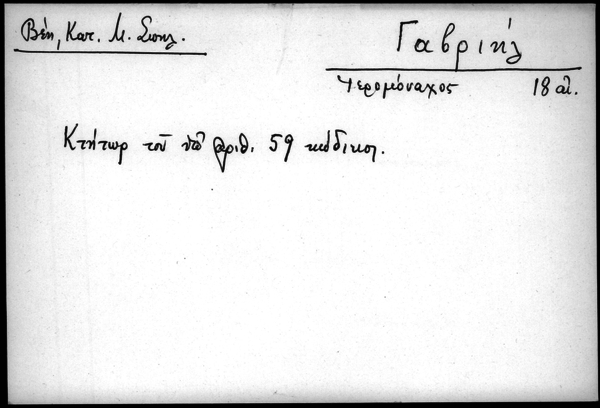 Βέη, Κατ. Μ. Σπηλ.
Γαβριήλ
Ἱερομόναχος 18 αἰ.
Κτήτωρ τοῦ ὑπ' ἀριθ. 59 κώδικος.